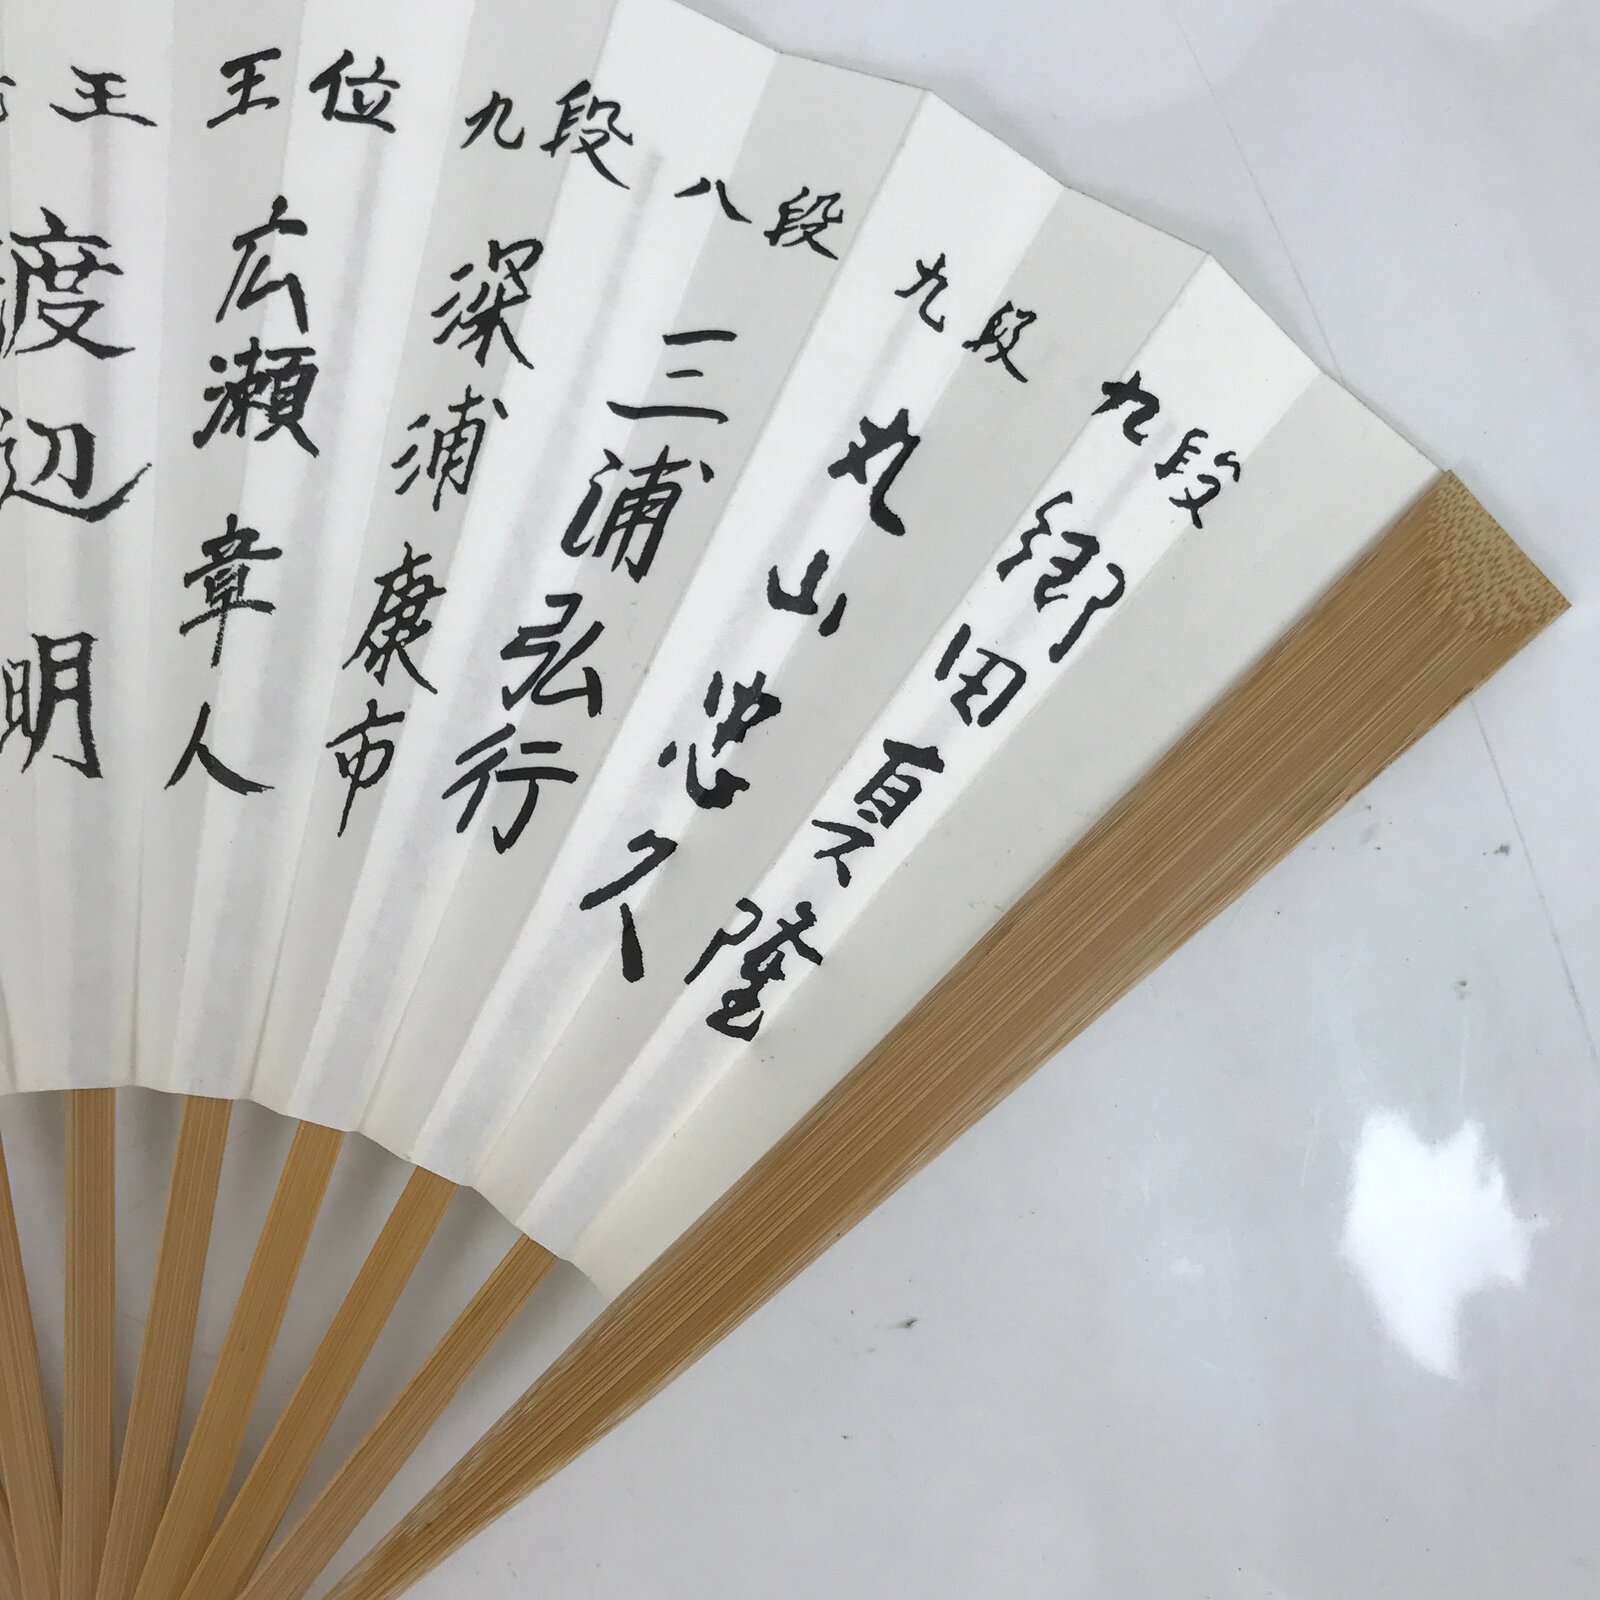 九段 郷田真隆
九段 丸山忠久
八段 三浦弘行
九段 深浦康市
王位 広瀬章人
王 渡辺明